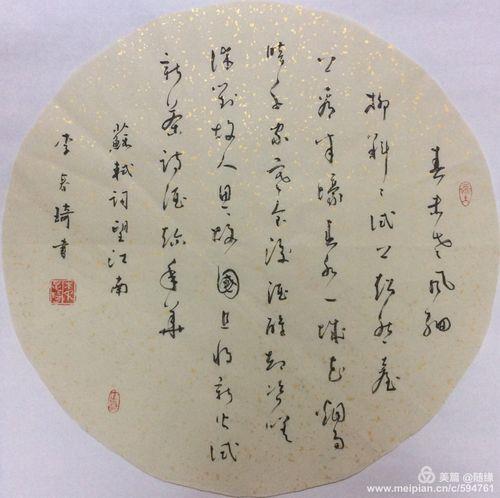 春未老風細
柳斜〻試上超然臺
上看半壕春水一城花烟雨
暗千家寒食後酒醒却咨嗟
休對故人思故國且將新火試
新茶詩酒趁年華
蘇軾詞望江南
李琦書
美篇 @随缘
www.meipian.cn/c/594761